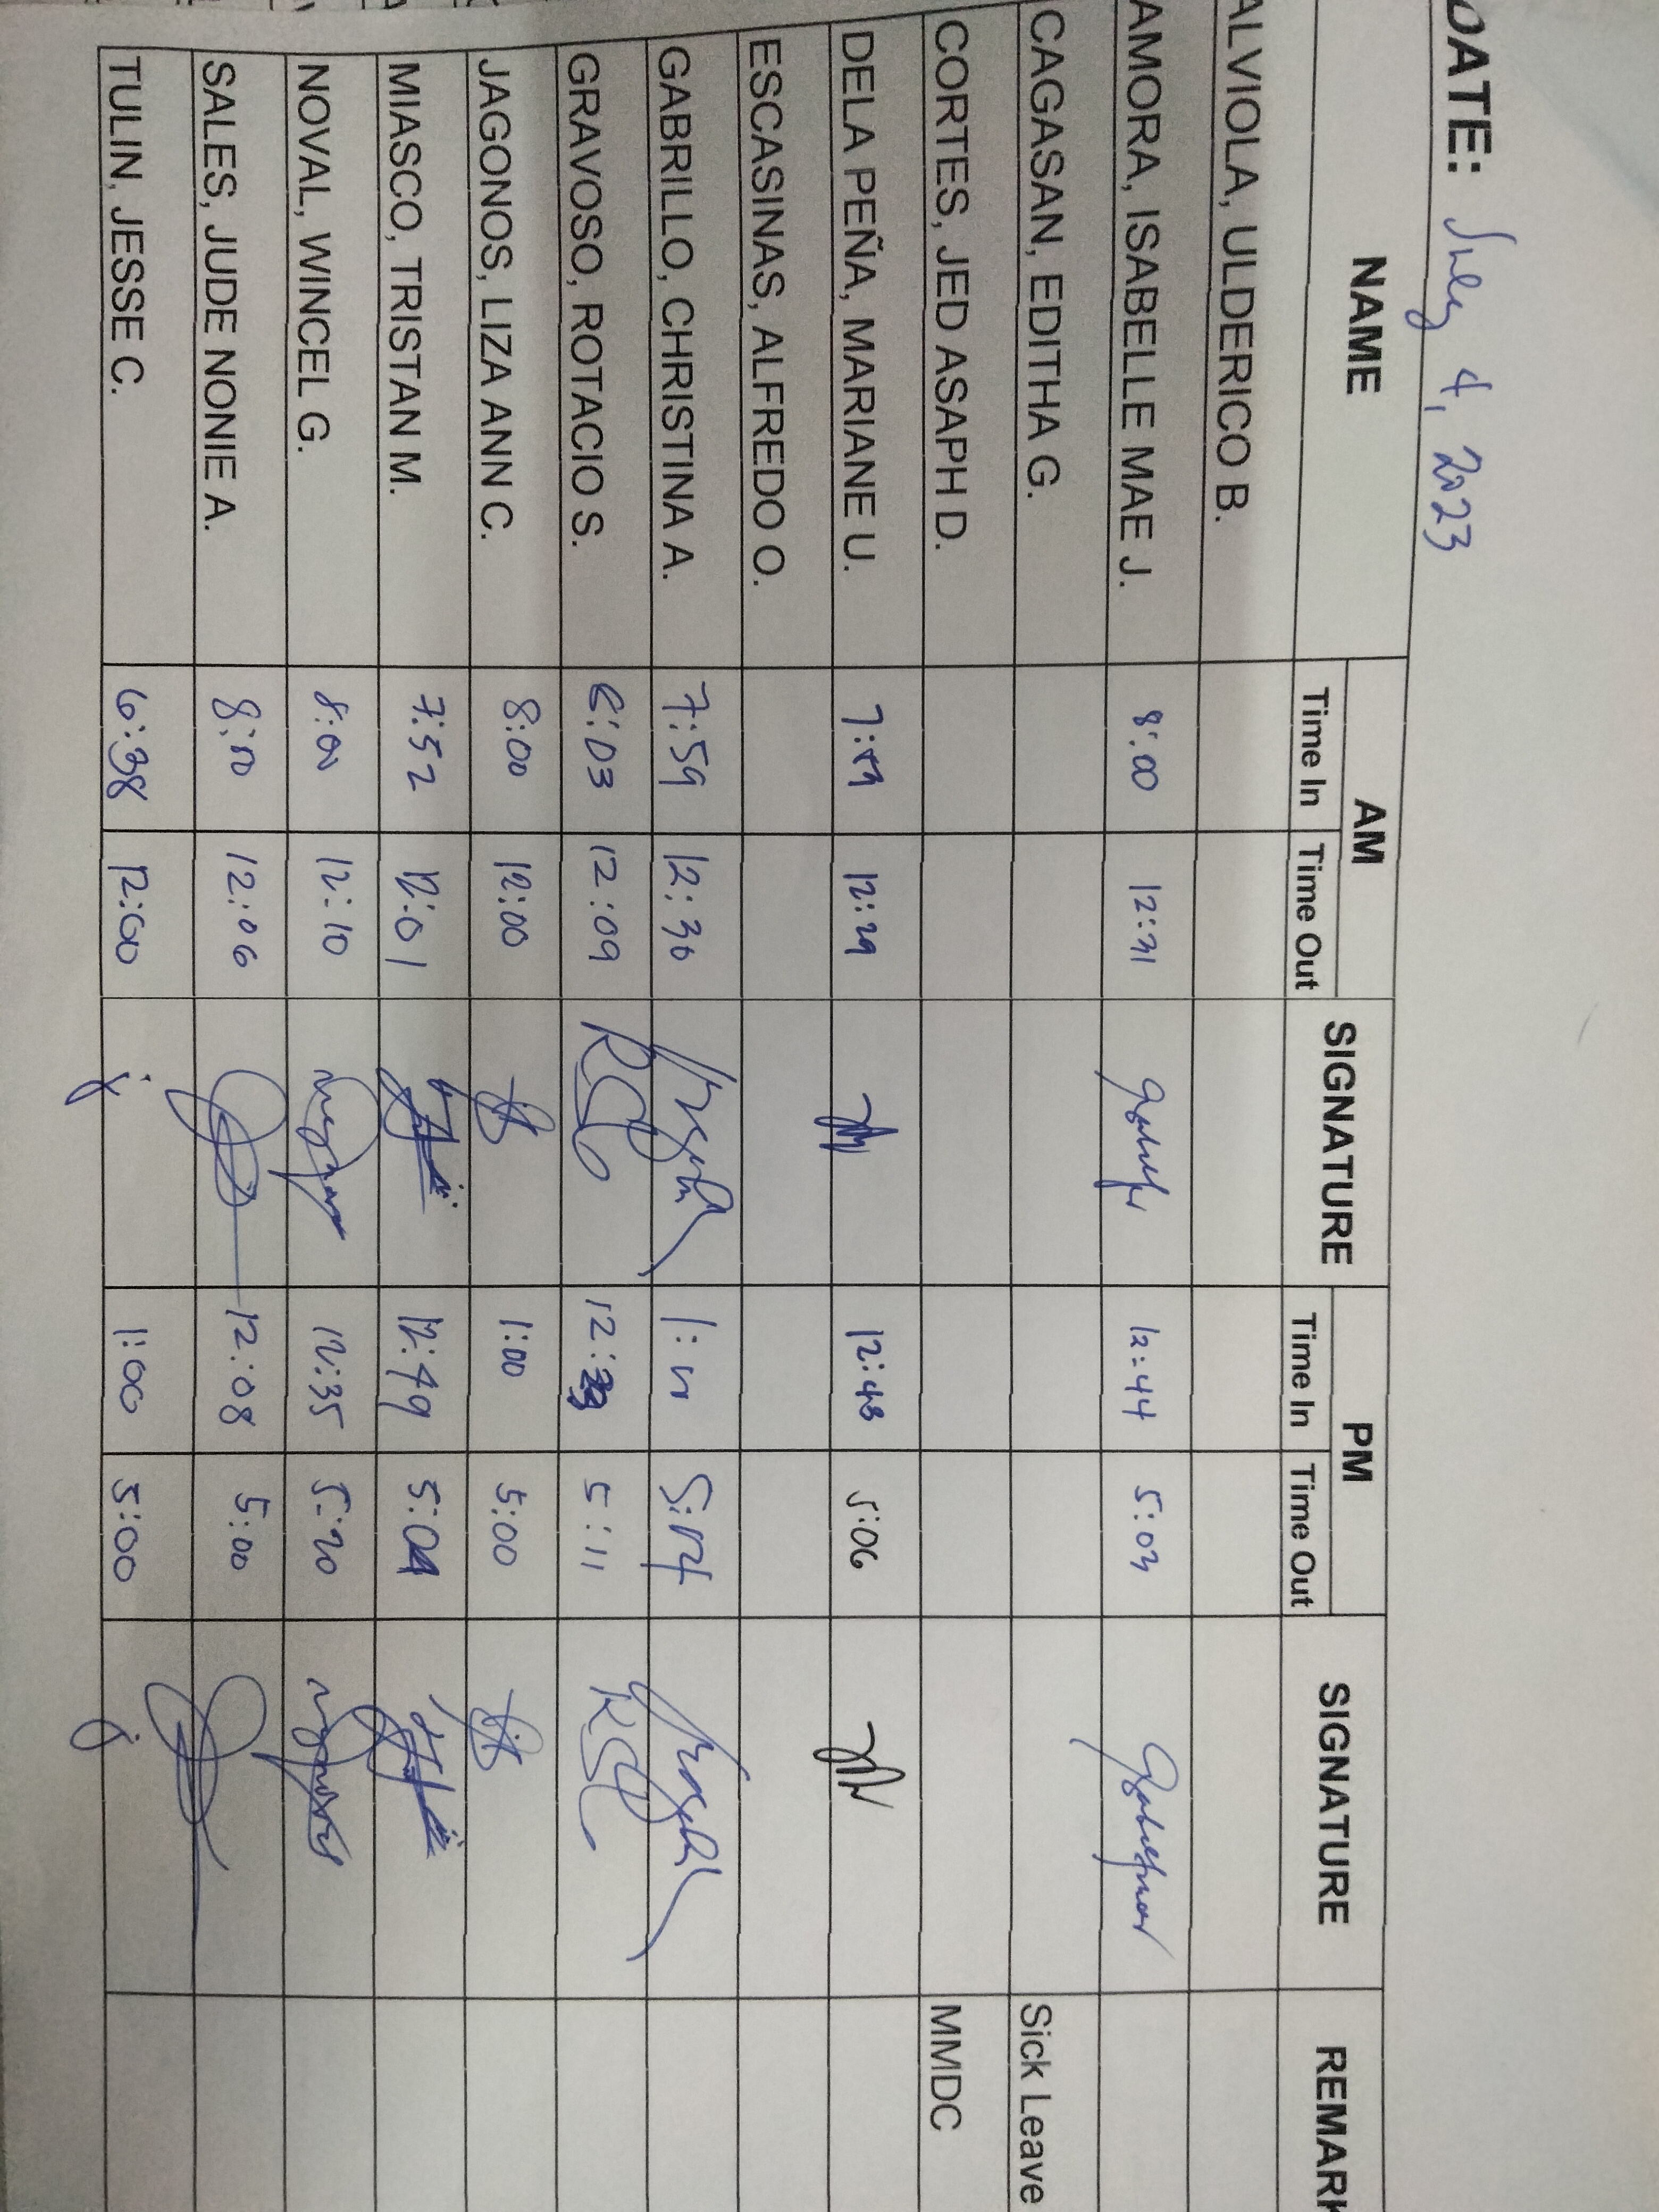 DATE: July 4, 2023
NAME AM SIGNATURE PM SIGNATURE REMARK
Time In Time Out Time In Time Out
ALVIOLA, ULDERICO B.
AMORA, ISABELLE MAE J. 8:00 12:31 12:44 5:03
CAGASAN, EDITHA G. Sick Leave
CORTES, JED ASAPH D. MMDC
DELA PEÑA, MARIANE U. 12:29 12:48 5:06
ESCASINAS, ALFREDO O.
GABRILLO, CHRISTINA A. 7:59 12:30
GRAVOSO, ROTACIO S. 6:03 12:09 5:11
JAGONOS, LIZA ANN C. 8:00 12:00 1:00 5:00
MIASCO, TRISTAN M. 7:52 12:01 12:49
NOVAL, WINCEL G. 8:00 12:10 12:35 5:20
SALES, JUDE NONIE A. 8:00 12:06 12:08 5:00
TULIN, JESSE C. 6:38 12:00 1:00 5:00